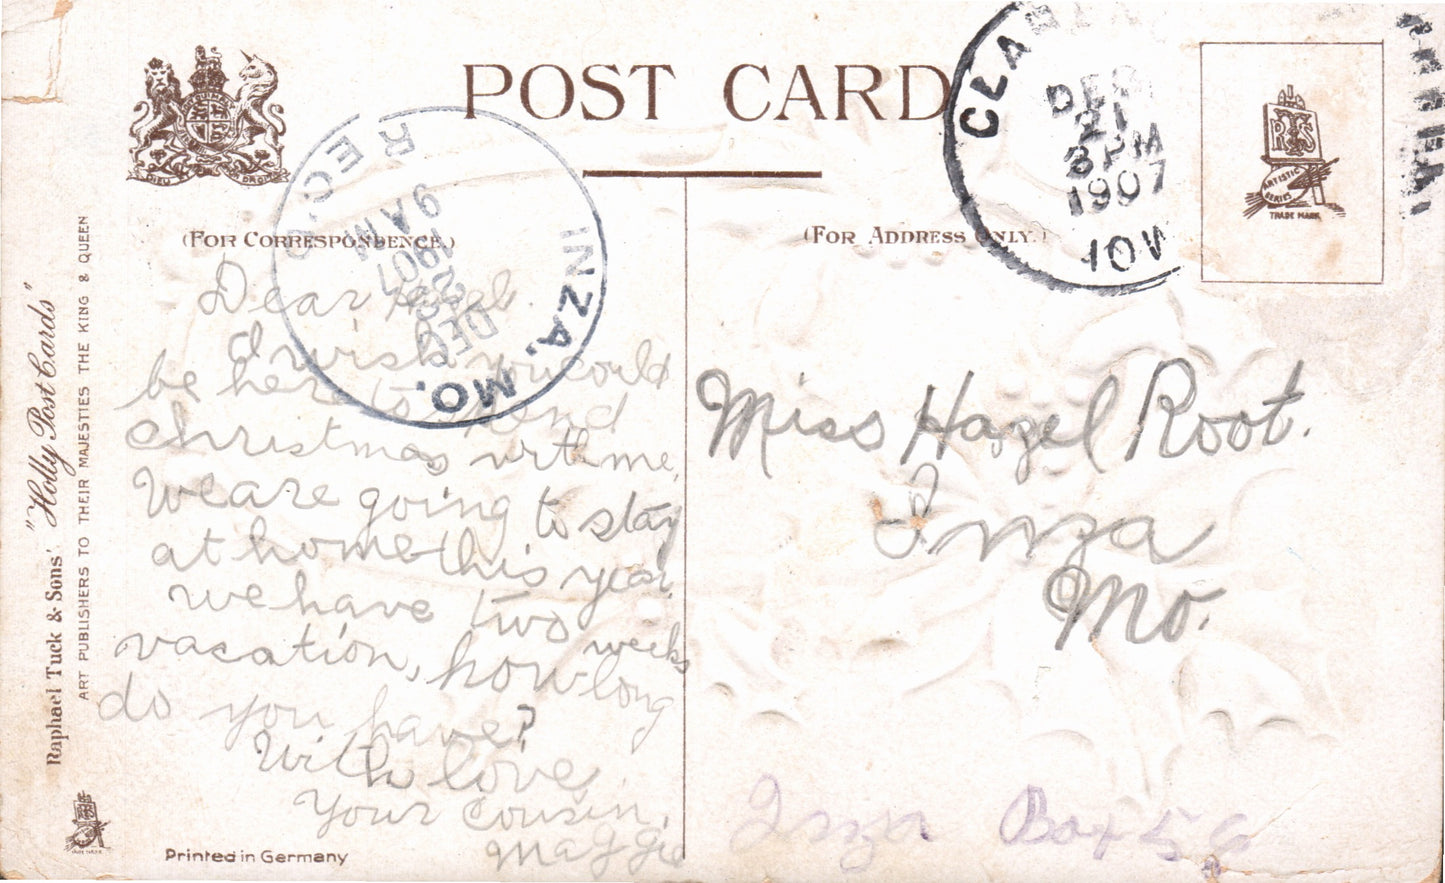 POST CARD
(For Correspondence.)
(For Address Only.)
REC'D
9 AM
1907
DEC
INZA, MO.
CLA
DEC
21
3 PM
1907
IOW
RTS
ARTISTIC SERIES
TRADE MARK
DIEU ET MON DROIT
Raphael Tuck & Sons' "Holly Post Cards"
ART PUBLISHERS TO THEIR MAJESTIES THE KING & QUEEN
Dear Hazel.
I wish you could
be here to spend
Christmas with me.
We are going to stay
at home this year.
we have two weeks
vacation, how long
do you have?
With love
Your Cousin,
Maggie
Miss Hazel Root.
Inza
Mo.
Inza Box 56
Printed in Germany